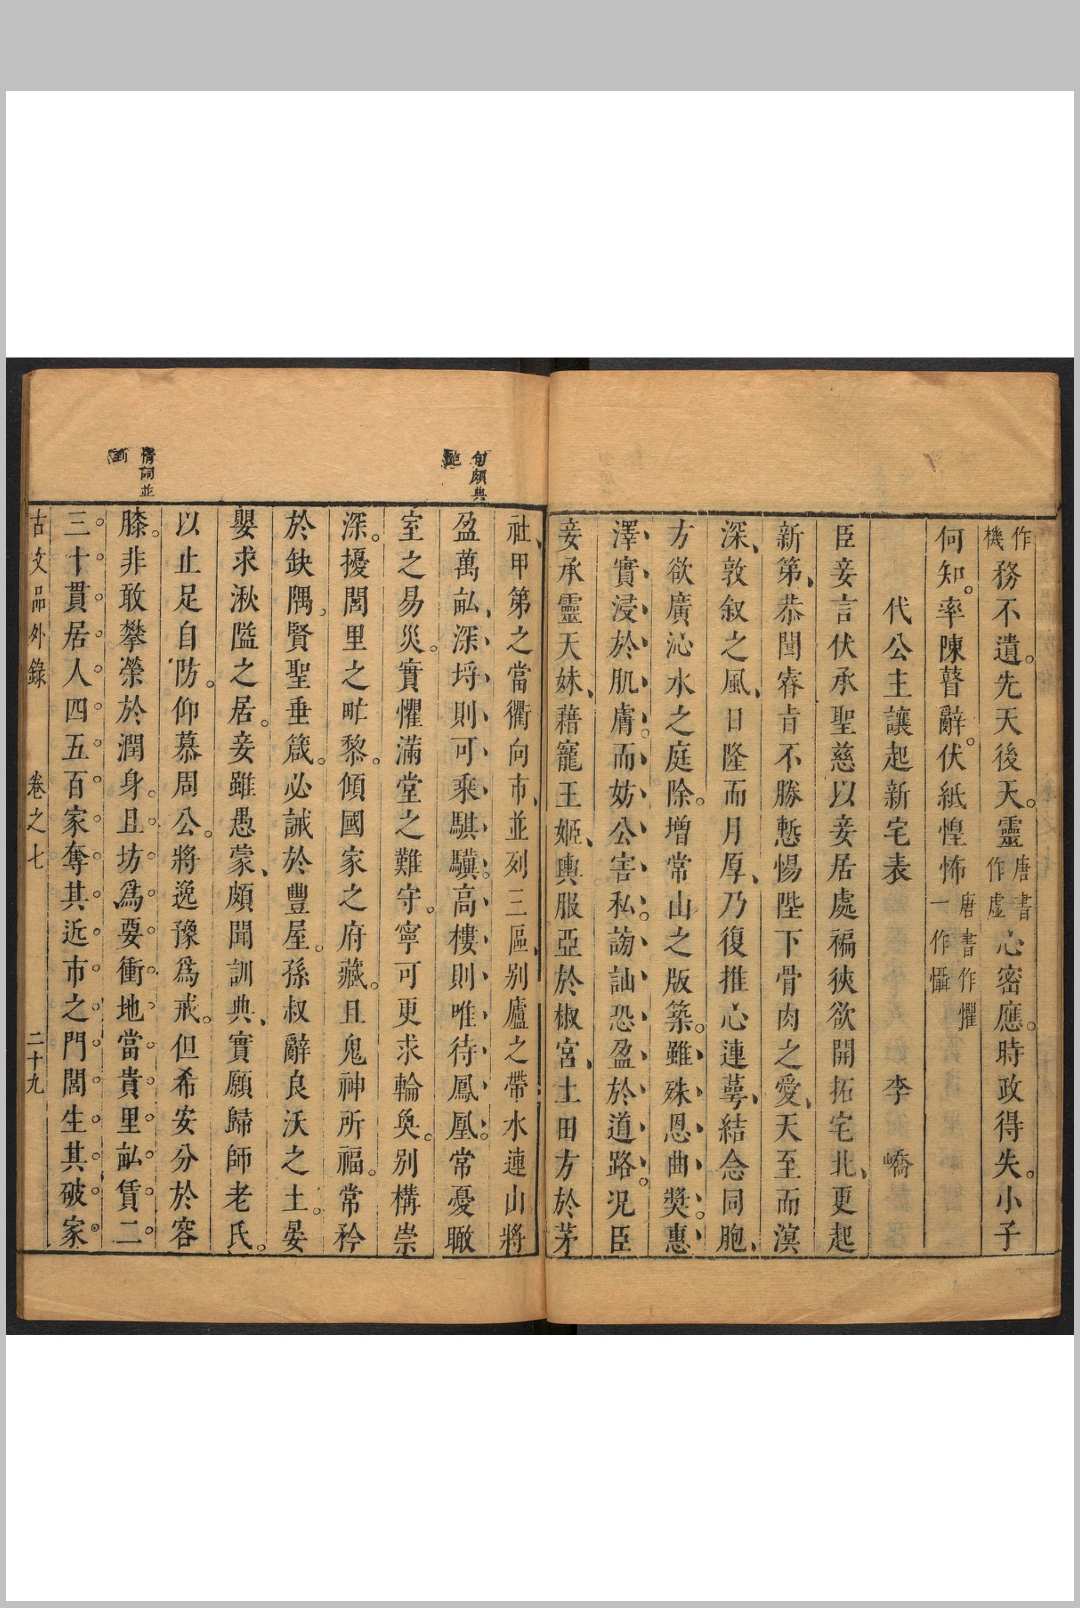 作機務不遺。先天後天。靈唐書作虛心密應。時政得失。小子
何知。率陳瞽辭。伏紙惶怖唐書作懼一作懾
代公主讓起新宅表 李嶠
臣妾言伏承聖慈以妾居處褊狹欲開拓宅北、更起
新第、恭聞睿旨不勝慙惕陛下骨肉之愛、天至而溟
深、敦叙之風、日隆而月厚、乃復推心連萼、結念同胞、
方欲廣沁水之庭除。增常山之版築。雖殊恩曲奬。惠
澤實浸於肌膚。而妨公害私。謗訕恐盈於道路。况臣
妾承靈天妹、藉寵王姬、輿服亞於椒宮、土田方於茅
社、甲第之當衢向市、並列三區、別廬之帶水連山將
盈萬畆、深埒則可乘騏驥。高樓則唯待鳳凰。常憂瞰
室之易災。實懼滿堂之難守。寧可更求輪奐。別構崇
深。擾閭里之甿黎。傾國家之府藏。且鬼神所福。常矜
於缺隅。賢聖垂箴。必誡於豐屋。孫叔辭良沃之土。晏
嬰求湫隘之居。妾雖愚蒙、頗聞訓典、實願歸師老氏。
以止足自防。仰慕周公。將逸豫爲戒。但希安分於容
膝。非敢攀榮於潤身。且坊爲要衝。地當貴里。畆賃二
三十貫。居人四五百家。奪其近市之門閭。生其破家
句頗典艷
情詞並到
古文品外錄 卷之七 二十九